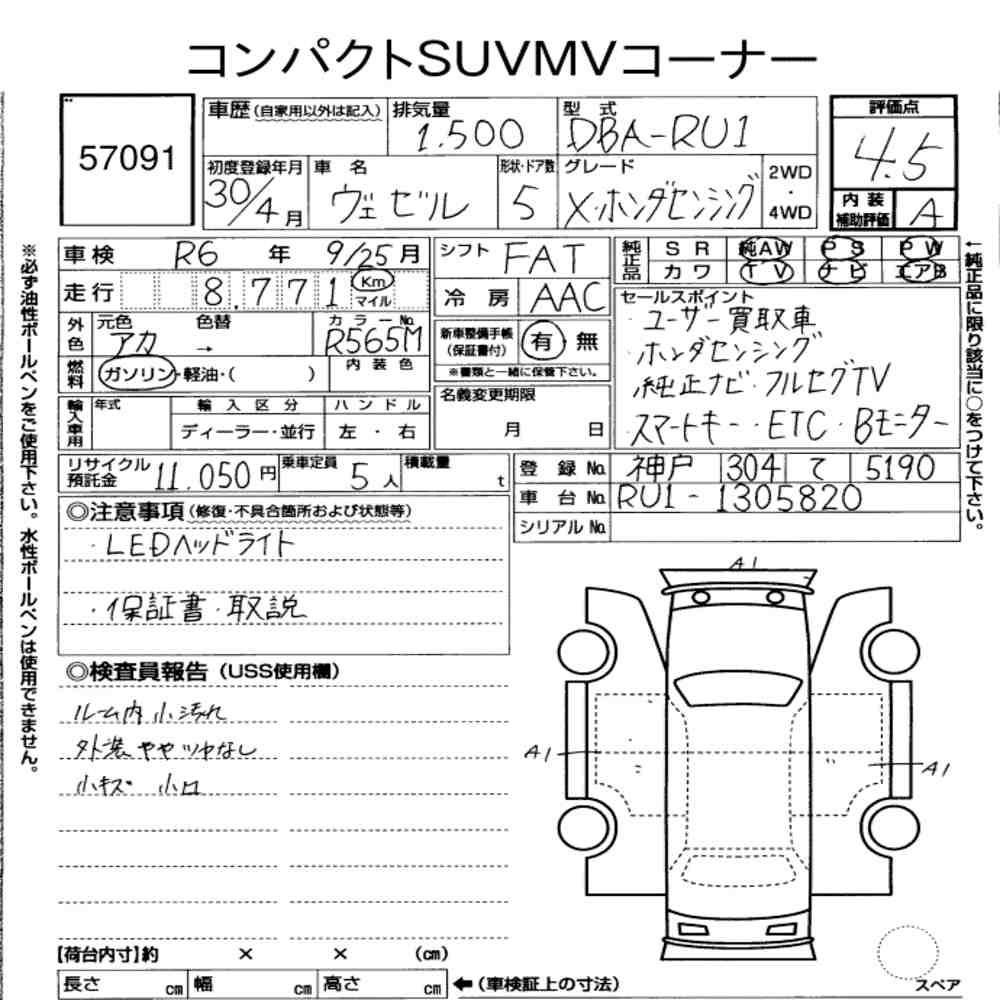 コンパクトSUVMVコーナー
57091
車歴(自家用以外は記入)
排気量
1.500
型 式
DBA-RU1
評価点
4.5
初度登録年月
30/4月
車 名
ヴェゼル
形状・ドア数
5
グレード
X・ホンダセンシング
2WD
・
4WD
内装補助評価
A
車検 R6 年 9/25月
シフト FAT
純正品
SR 純AW PS PW
カワ TV ナビ エアB
走行 8.771 Km マイル
冷房 AAC
セールスポイント
・ユーザー買取車
・ホンダセンシング
・純正ナビ・フルセグTV
・スマートキー・ETC・Bモニター
外色
元色 色替 カラーNo.
アカ → R565M
新車整備手帳(保証書付) 有・無
※書類と一緒に保管下さい。
燃料
ガソリン・軽油・( )
内装色
名義変更期限
月 日
輸入車用
年式 輸入区分 ハンドル
ディーラー・並行 左・右
リサイクル預託金 11,050円
乗車定員 5人
積載量 t
登録No. 神戸 304 て 5190
車台No. RU1-1305820
シリアルNo.
◎注意事項(修復・不具合箇所および状態等)
・LEDヘッドライト
・保証書・取説
◎検査員報告(USS使用欄)
ルーム内小汚れ
外装ややツヤなし
小キズ 小凹
A1
A1
A1
【荷台内寸】約 × × (cm)
長さ cm 幅 cm 高さ cm ←(車検証上の寸法)
スペア
※必ず油性ボールペンをご使用下さい。水性ボールペンは使用できません。
←純正品に限り該当に○をつけて下さい。